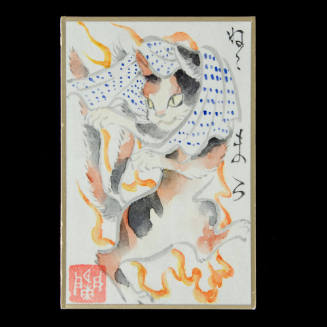 ねこまた